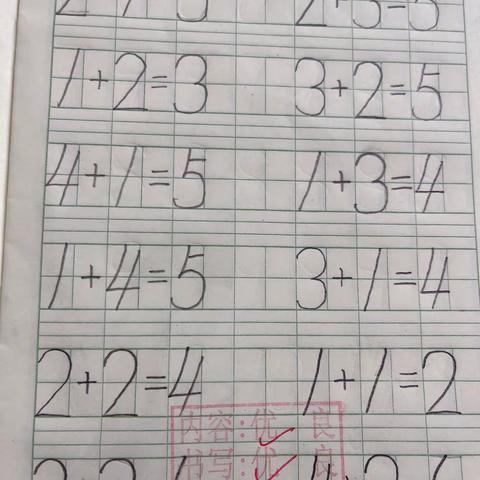 1+2=3 3+2=5
4+1=5 1+3=4
1+4=5 3+1=4
2+2=4 1+1=2
内容:优 良
书写:优 良